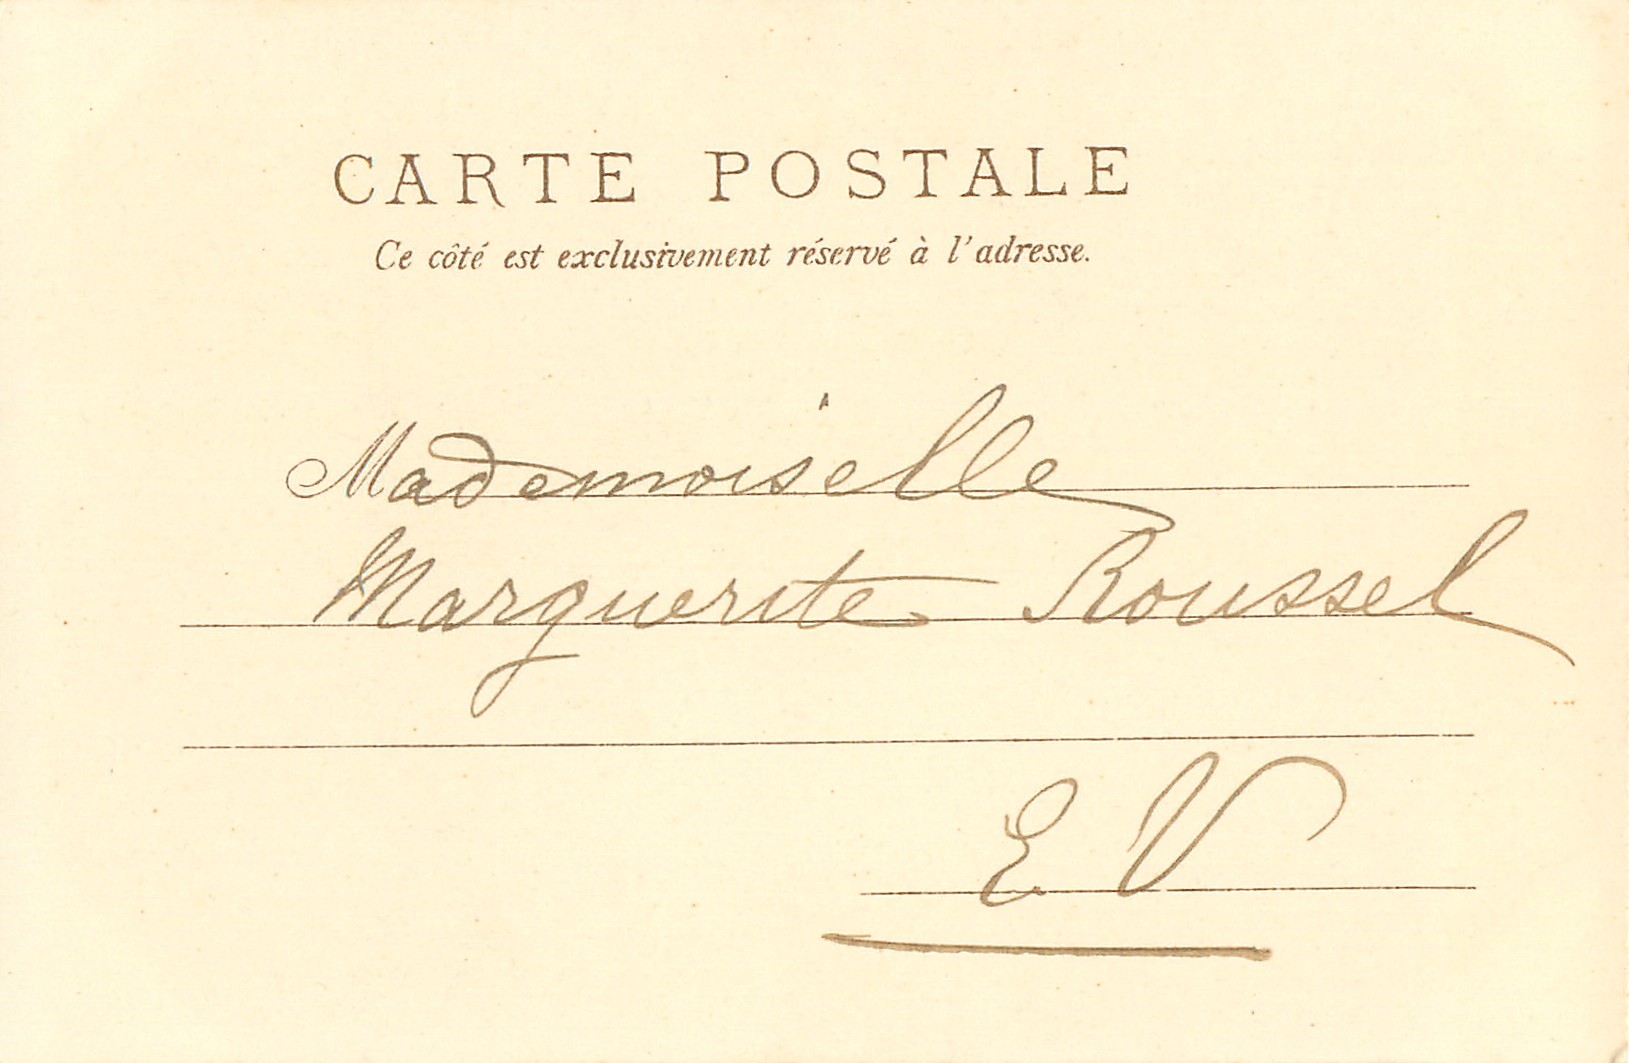 CARTE POSTALE
Ce côté est exclusivement réservé à l'adresse.
Mademoiselle
Marguerite Roussel
E V